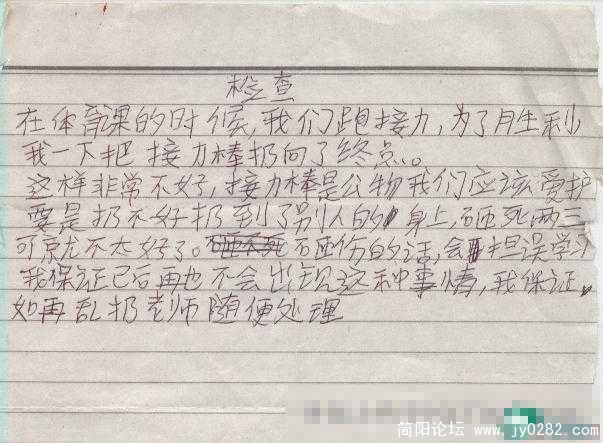 检查
在体育课的时候,我们跑接力,为了胜利
我一下把接力棒扔向了终点。
这样非常不好,接力棒是公物我们应该爱护
要是扔不好扔到了别人的身上,砸死两三
可就不太好了。砸伤的话,会担误学习
我保证已后再也不会出现这种事情,我保证
如再乱扔老师随便处理
简阳论坛 www.jy0282.com